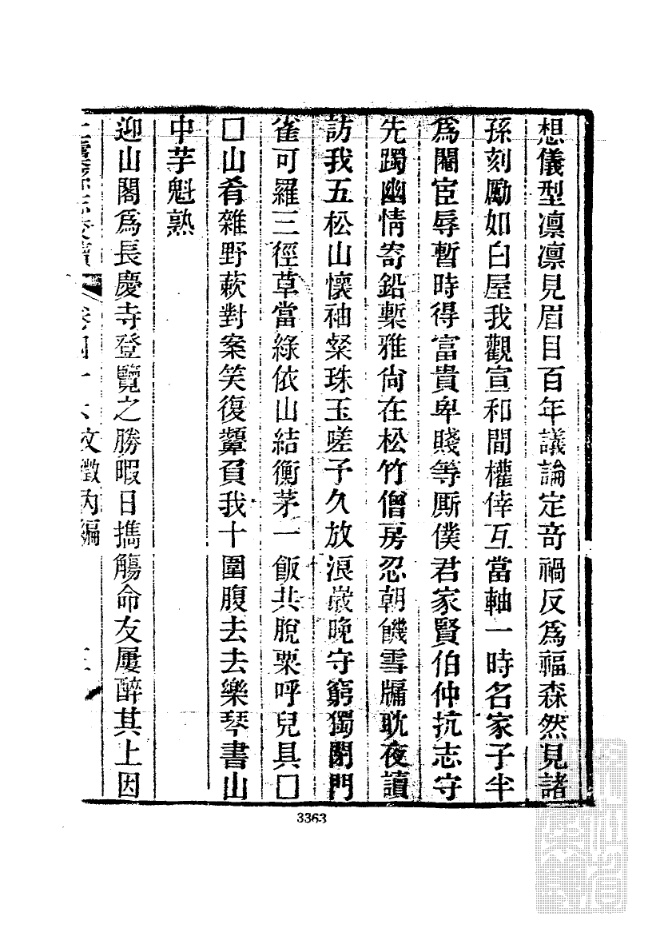 想儀型凛凛見眉目百年議論定竒禍反爲福森然見諸
孫刻勵如白屋我觀宣和間權倖互當軸一時名家子半
爲閹宦辱暫時得富貴卑賤等厮僕君家賢伯仲抗志守
先躅幽情寄鉛槧雅尙在松竹僧房忍朝饑雪牖耽夜讀
訪我五松山懷袖粲珠玉嗟子久放浪歲晚守窮獨閉門
雀可羅三徑草當綠依山結衡茅一飯共脫粟呼兒具□
□山肴雜野蔌對案笑復顰負我十圍腹去去樂琴書山
中芋魁熟
迎山閣爲長慶寺登覽之勝暇日攜觴命友屢醉其上因
卷四十六文徵內編
3363